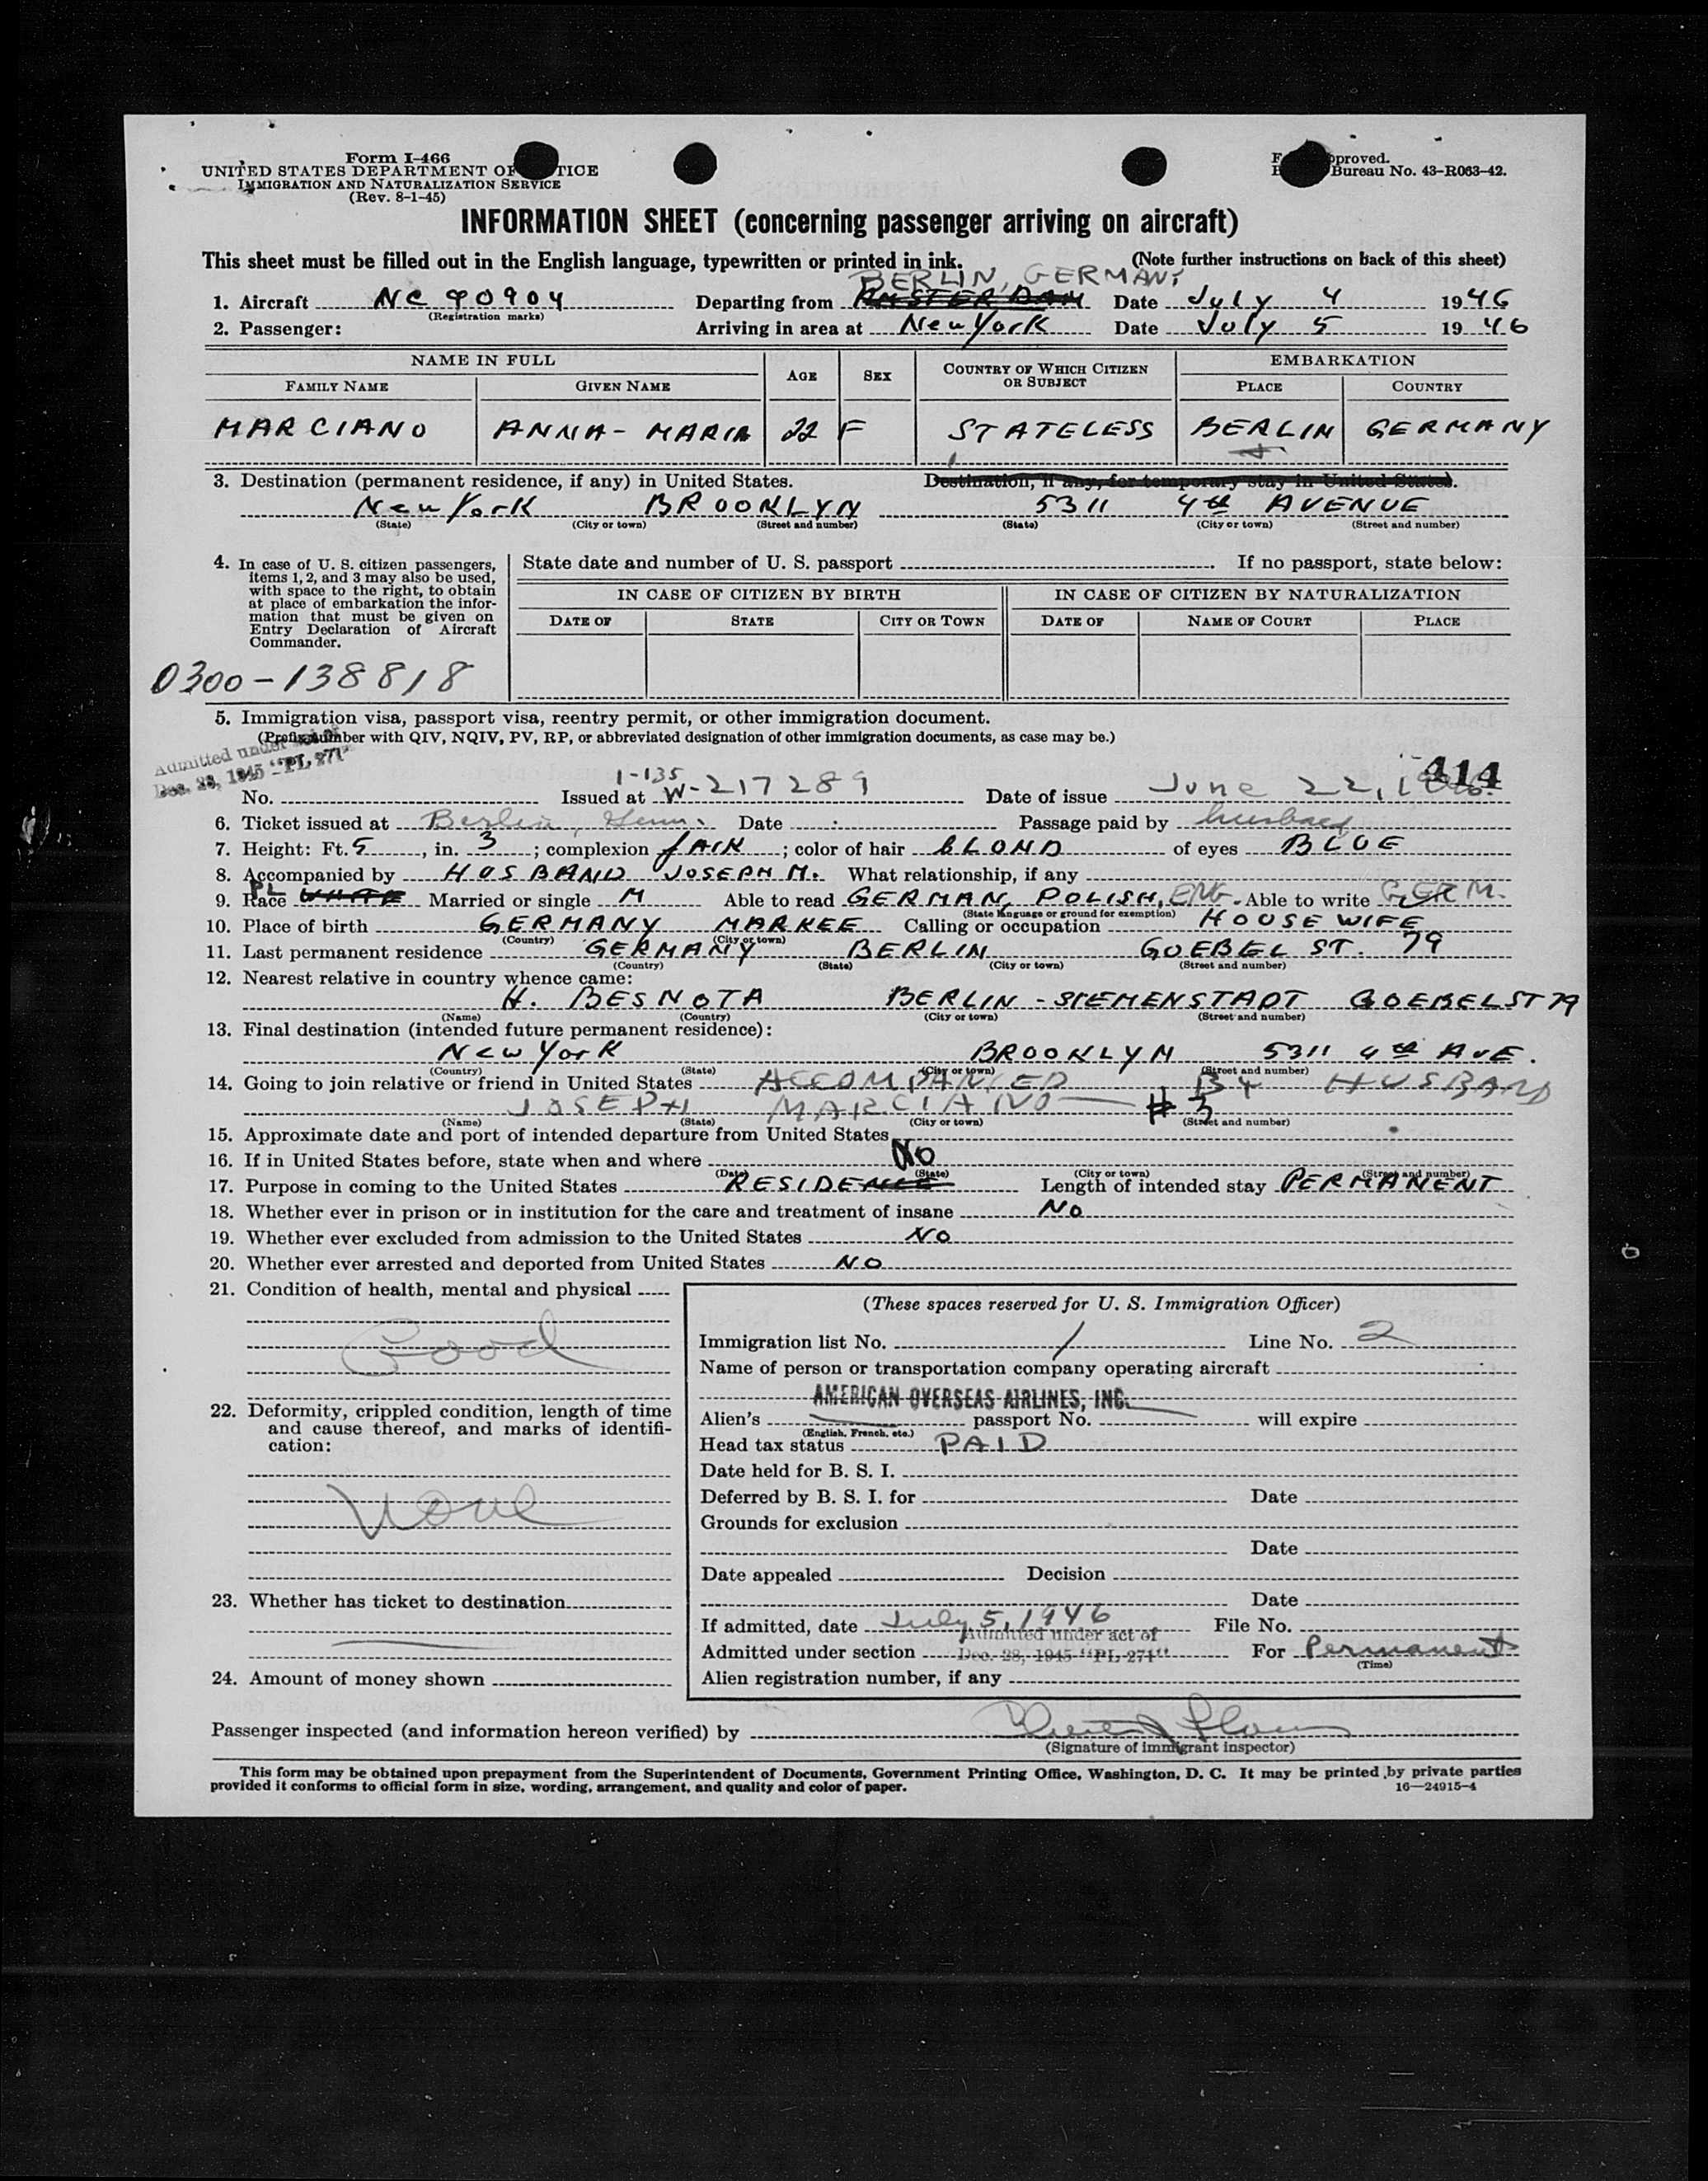 Form I-466
UNITED STATES DEPARTMENT OF TICE
IMMIGRATION AND NATURALIZATION SERVICE
(Rev. 8-1-45)
pproved.
Bureau No. 43-R063-42.
INFORMATION SHEET (concerning passenger arriving on aircraft)
This sheet must be filled out in the English language, typewritten or printed in ink. (Note further instructions on back of this sheet)
BERLIN, GERMANY
1. Aircraft NC 90904 Departing from AMSTERDAM Date July 4 1946
(Registration marks)
2. Passenger: Arriving in area at New York Date July 5 1946
NAME IN FULL AGE SEX COUNTRY OF WHICH CITIZEN OR SUBJECT EMBARKATION
FAMILY NAME GIVEN NAME PLACE COUNTRY
MARCIANO ANNA-MARIA 22 F STATELESS BERLIN GERMANY
3. Destination (permanent residence, if any) in United States. Destination, if any, for temporary stay in United States.
New York BROOKLYN 5311 4th AVENUE
(State) (City or town) (Street and number) (State) (City or town) (Street and number)
4. In case of U. S. citizen passengers, items 1, 2, and 3 may also be used, with space to the right, to obtain at place of embarkation the information that must be given on Entry Declaration of Aircraft Commander.
State date and number of U. S. passport If no passport, state below:
IN CASE OF CITIZEN BY BIRTH IN CASE OF CITIZEN BY NATURALIZATION
DATE OF STATE CITY OR TOWN DATE OF NAME OF COURT PLACE
0300-138818
5. Immigration visa, passport visa, reentry permit, or other immigration document.
(Prefix number with QIV, NQIV, PV, RP, or abbreviated designation of other immigration documents, as case may be.)
Admitted under act of
Dec. 28, 1945 "PL 271"
414
I-135
No. Issued at W-217289 Date of issue June 22, 1946
6. Ticket issued at Berlin, Germ. Date Passage paid by husband
7. Height: Ft. 5, in. 3; complexion fAIR; color of hair bLOND of eyes BLUE
8. Accompanied by HUSBAND JOSEPH M. What relationship, if any
PL
9. Race WHITE Married or single M Able to read GERMAN, POLISH, ENG. Able to write GERM.
(State language or ground for exemption)
10. Place of birth GERMANY MARKEE Calling or occupation HOUSEWIFE
(Country) (City or town)
11. Last permanent residence GERMANY BERLIN GOEBEL ST. 79
(Country) (State) (City or town) (Street and number)
12. Nearest relative in country whence came:
H. BESNOTA BERLIN-SIEMENSTADT GOEBELST 79
(Name) (Country) (City or town) (Street and number)
13. Final destination (intended future permanent residence):
New York BROOKLYN 5311 4th AVE.
(Country) (State) (City or town) (Street and number)
14. Going to join relative or friend in United States ACCOMPANIED BY HUSBAND
JOSEPH MARCIANO # 3
(Name) (State) (City or town) (Street and number)
15. Approximate date and port of intended departure from United States
16. If in United States before, state when and where No
(Date) (State) (City or town) (Street and number)
17. Purpose in coming to the United States RESIDENCE Length of intended stay PERMANENT
18. Whether ever in prison or in institution for the care and treatment of insane No
19. Whether ever excluded from admission to the United States NO
20. Whether ever arrested and deported from United States NO
21. Condition of health, mental and physical
Good
22. Deformity, crippled condition, length of time and cause thereof, and marks of identification:
None
23. Whether has ticket to destination
24. Amount of money shown
(These spaces reserved for U. S. Immigration Officer)
Immigration list No. 1 Line No. 2
Name of person or transportation company operating aircraft
AMERICAN OVERSEAS AIRLINES, INC.
Alien's passport No. will expire
(English, French, etc.)
Head tax status PAID
Date held for B. S. I.
Deferred by B. S. I. for Date
Grounds for exclusion
Date
Date appealed Decision
Date
If admitted, date July 5, 1946 File No.
Admitted under act of
Admitted under section Dec. 28, 1945 "PL 271" For Permanent
(Time)
Alien registration number, if any
Passenger inspected (and information hereon verified) by
(Signature of immigrant inspector)
This form may be obtained upon prepayment from the Superintendent of Documents, Government Printing Office, Washington, D. C. It may be printed by private parties
provided it conforms to official form in size, wording, arrangement, and quality and color of paper. 16—24915-4